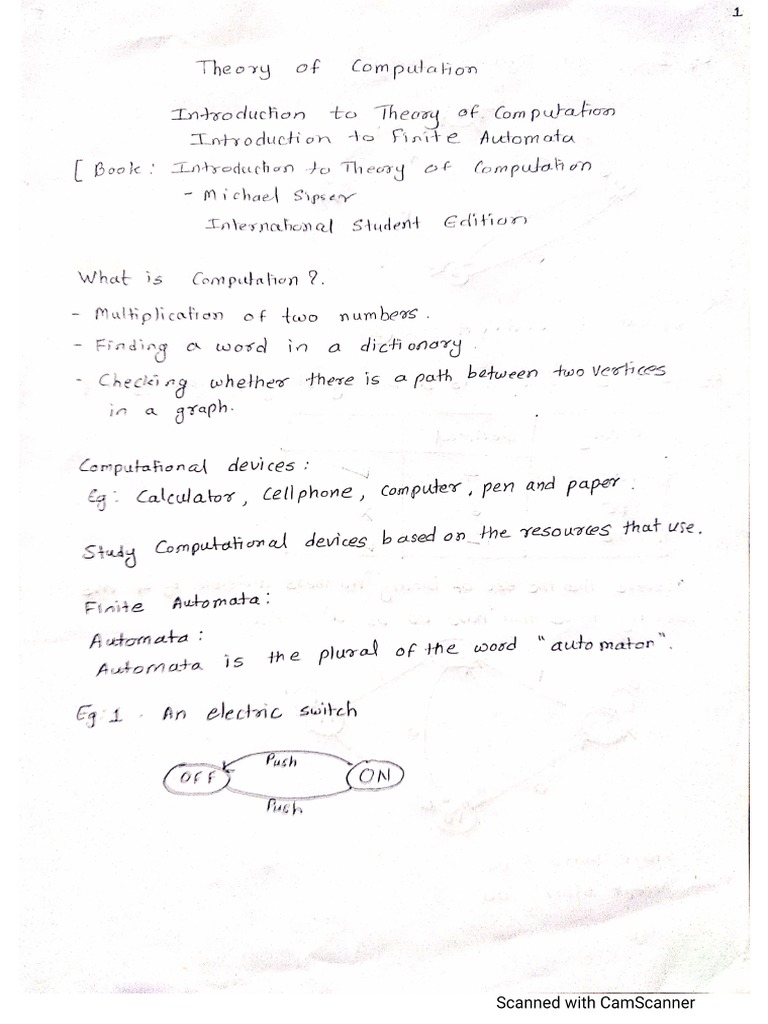 1
Theory of Computation
Introduction to Theory of Computation
Introduction to Finite Automata
[ Book: Introduction to Theory of Computation
- Michael Sipser
International Student Edition
What is Computation?.
- Multiplication of two numbers.
- Finding a word in a dictionary.
- Checking whether there is a path between two vertices
in a graph.
Computational devices:
Eg: Calculator, cellphone, computer, pen and paper.
Study Computational devices based on the resources that use.
Finite Automata:
Automata:
Automata is the plural of the word "automator".
Eg:1. An electric switch
Push
OFF ON
Push
Scanned with CamScanner